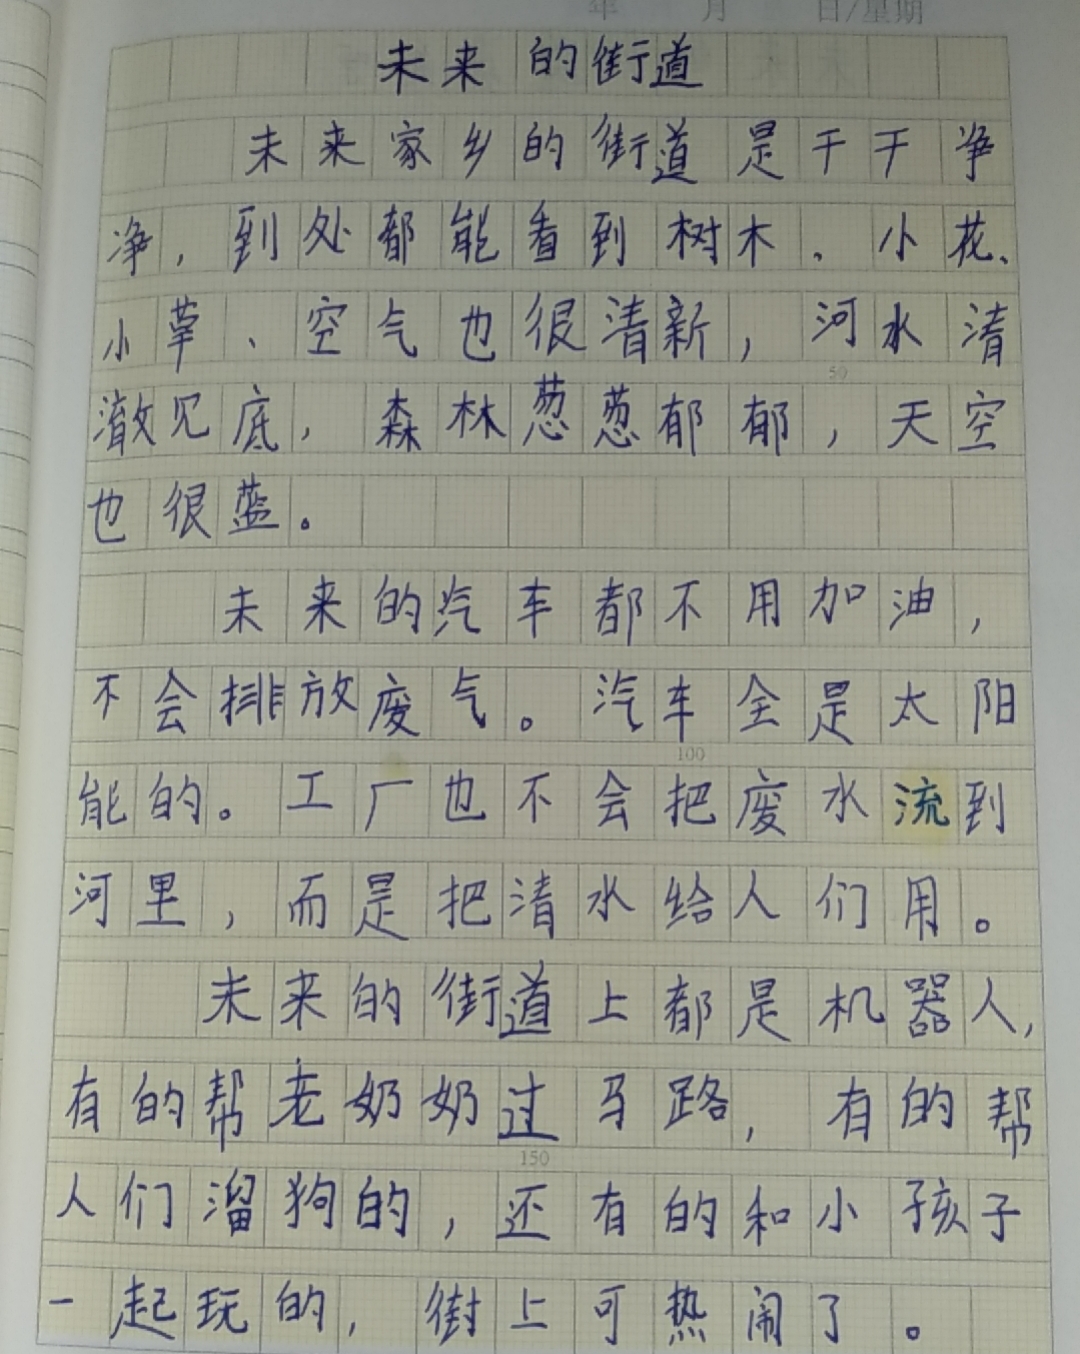 年 月 日/星期
未来的街道
未来家乡的街道是干干净
净，到处都能看到树木、小花、
小草、空气也很清新，河水清
澈见底，森林葱葱郁郁，天空
也很蓝。
50
未来的汽车都不用加油，
不会排放废气。汽车全是太阳
100
能的。工厂也不会把废水流到
河里，而是把清水给人们用。
未来的街道上都是机器人，
有的帮老奶奶过马路，有的帮
150
人们溜狗的，还有的和小孩子
一起玩的，街上可热闹了。